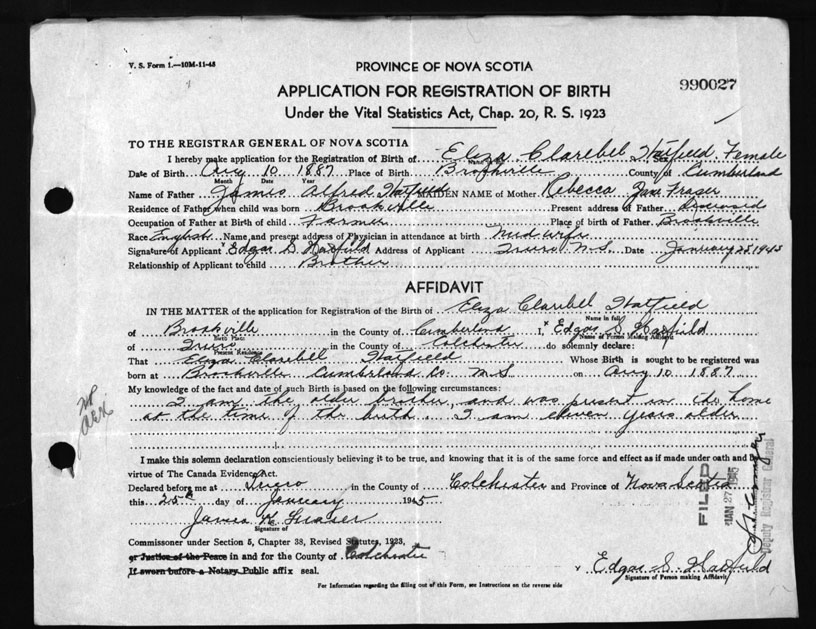 V. S. Form 1.—10M-11-43
PROVINCE OF NOVA SCOTIA
990027
APPLICATION FOR REGISTRATION OF BIRTH
Under the Vital Statistics Act, Chap. 20, R. S. 1923
TO THE REGISTRAR GENERAL OF NOVA SCOTIA
I hereby make application for the Registration of Birth of Eliza Claribel Hatfield Female
Date of Birth Aug 10 1887 Place of Birth Brookville County of Cumberland
Month Date Year
Name of Father James Alfred Hatfield MAIDEN NAME of Mother Rebecca Jane Fraser
Residence of Father when child was born Brookville Present address of Father Deceased
Occupation of Father at Birth of child Farmer Place of birth of Father Brookville
Race English Name and present address of Physician in attendance at birth Midwife
Signature of Applicant x Edgar S Hatfield Address of Applicant Truro N.S. Date January 25 1945
Relationship of Applicant to child Brother
AFFIDAVIT
IN THE MATTER of the application for Registration of the Birth of Eliza Claribel Hatfield
Name in full
of Brookville in the County of Cumberland I, x Edgar S Hatfield
Birth Place Name of Person Making Affidavit
of Truro in the County of Colchester do solemnly declare:
Present Residence
That Eliza Claribel Hatfield Whose Birth is sought to be registered was
born at Brookville Cumberland Co. N.S on Aug 10 1887
My knowledge of the fact and date of such Birth is based on the following circumstances:
I am the older brother and was present in the home
at the time of the birth. I am eleven years older
I make this solemn declaration conscientiously believing it to be true, and knowing that it is of the same force and effect as if made under oath and by
virtue of The Canada Evidence Act.
Declared before me at Truro in the County of Colchester and Province of Nova Scotia
this 25th day of January 1945
James K Fraser
Signature of
Commissioner under Section 5, Chapter 38, Revised Statutes, 1923,
or Justice of the Peace in and for the County of Colchester
If sworn before a Notary Public affix seal.
x Edgar S. Hatfield
Signature of Person making Affidavit
For Information regarding the filling out of this Form, see Instructions on the reverse side
FILED
JAN 27 1945
Deputy Registrar General